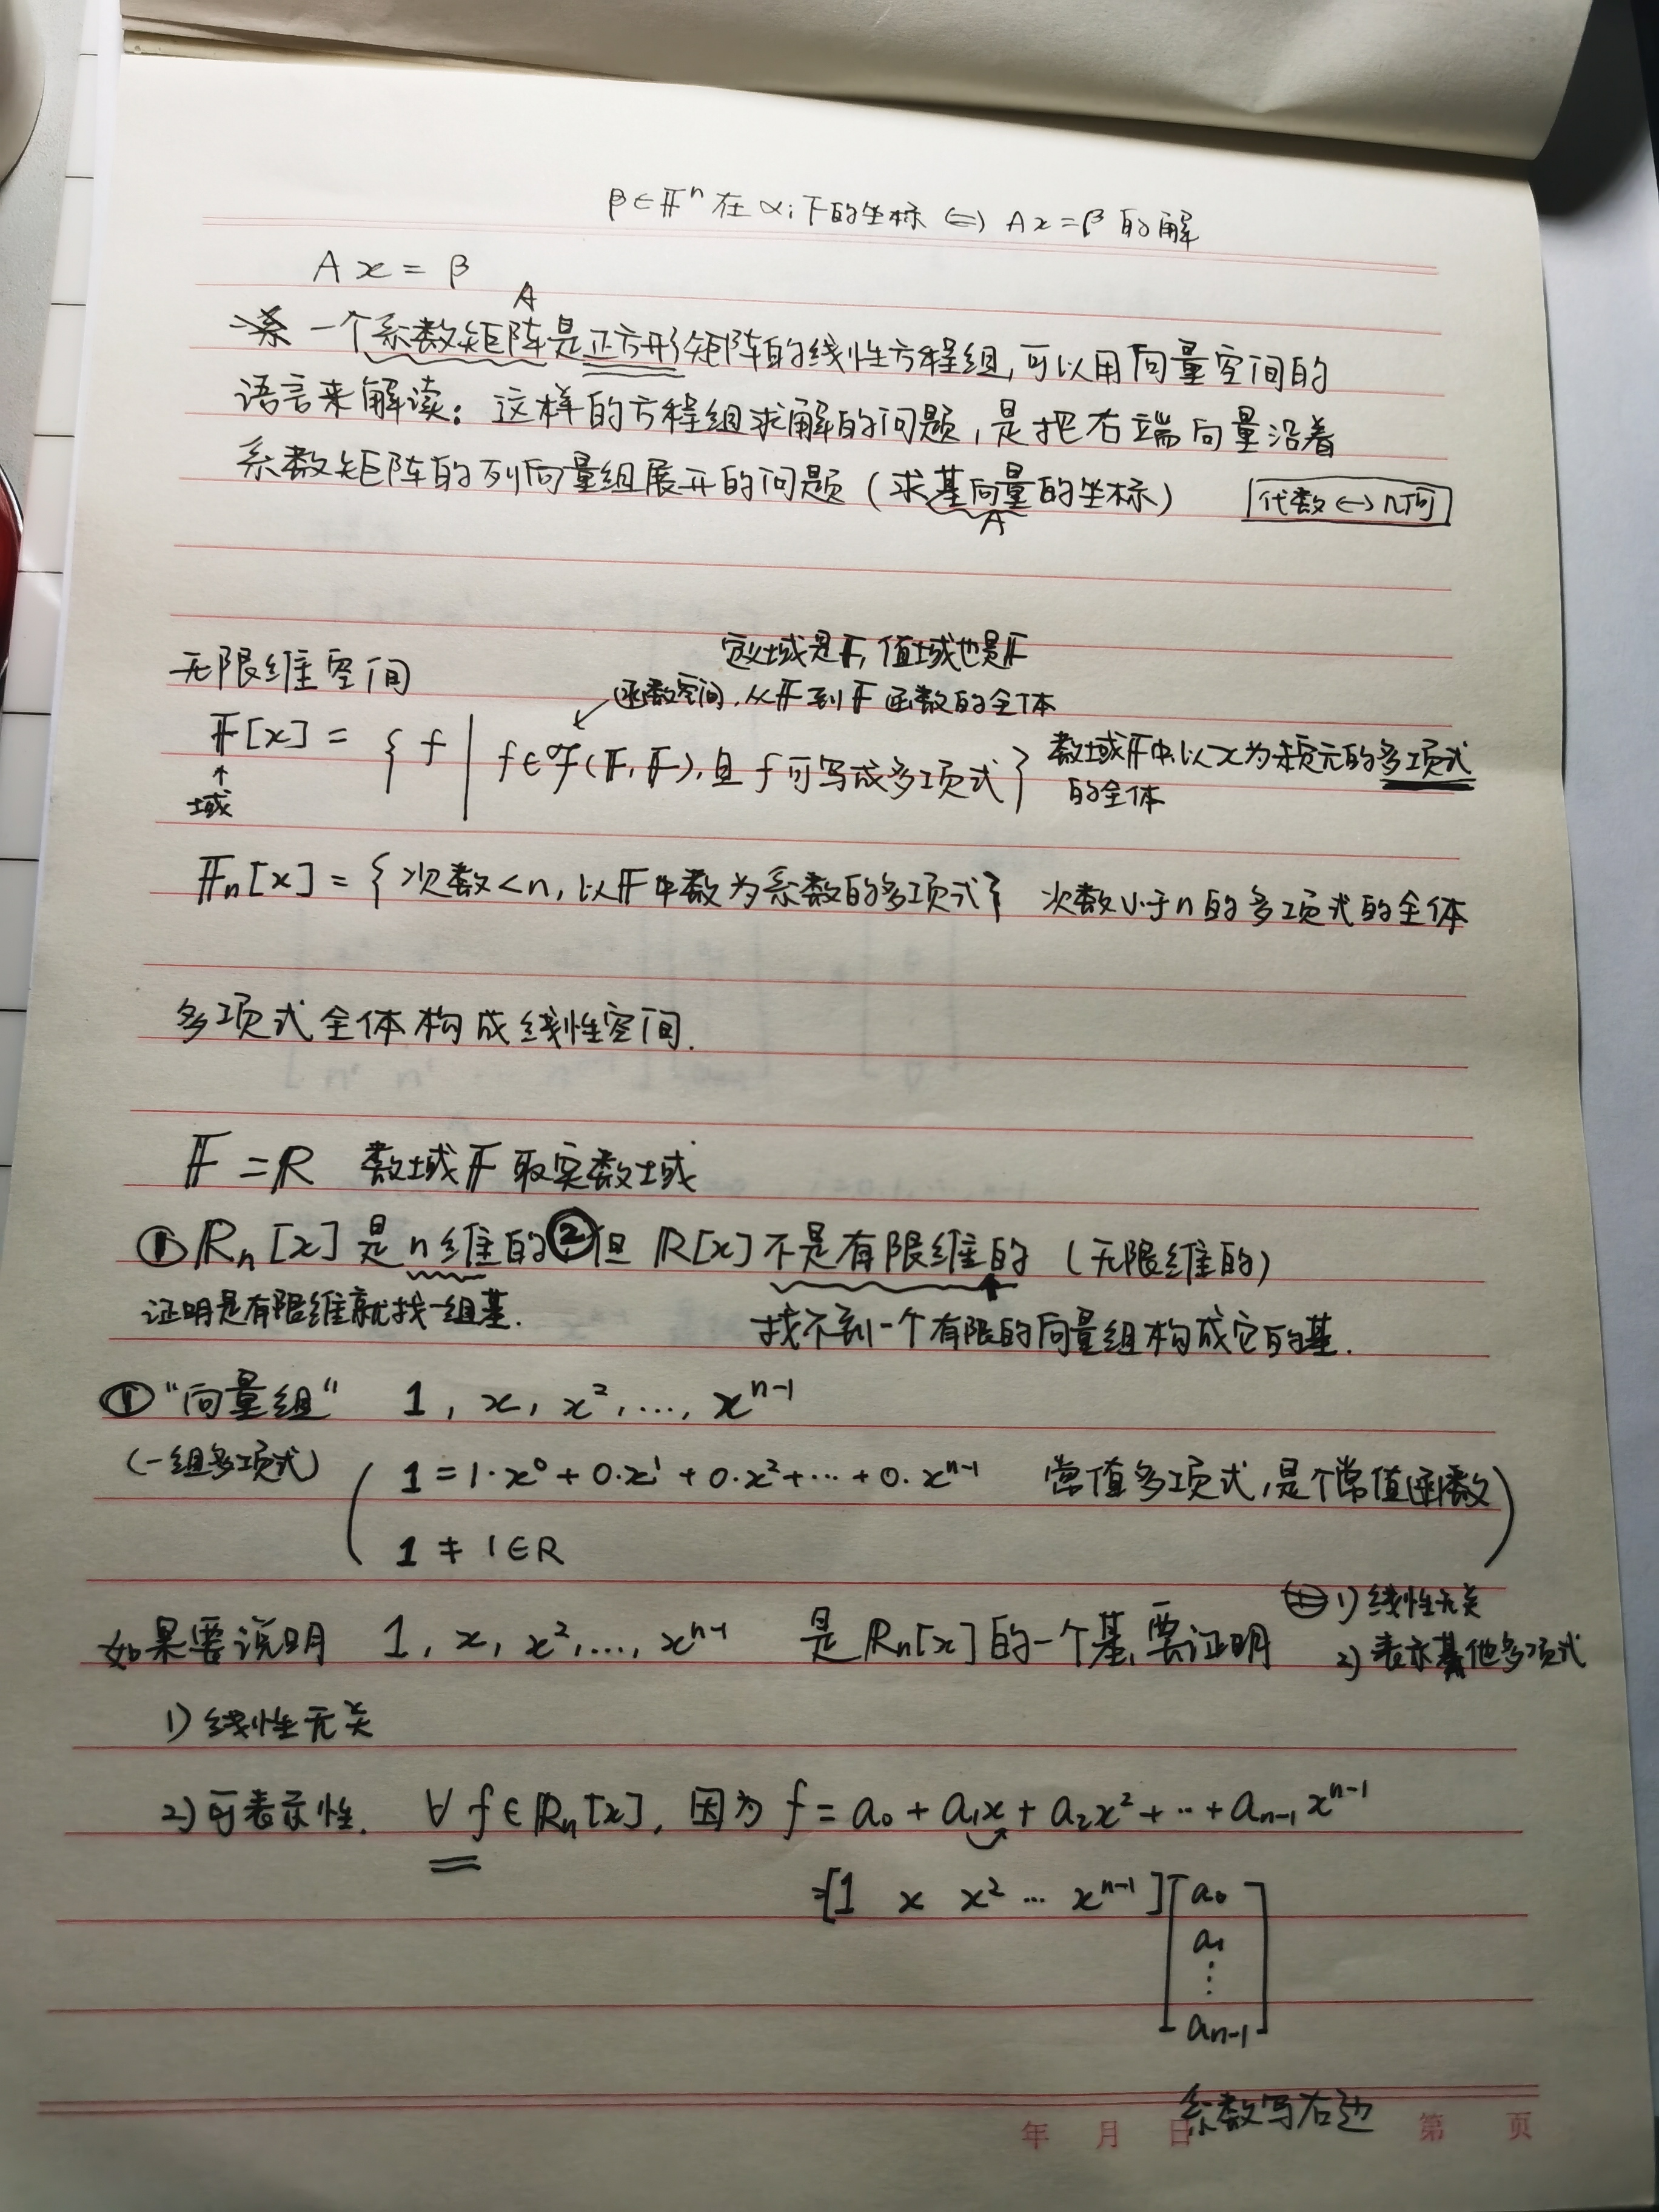 β∈𝔽ⁿ 在 αᵢ 下的坐标 ⇔ Ax=β 的解
Ax = β
A
一个系数矩阵是正方形矩阵的线性方程组,可以用向量空间的
语言来解读: 这样的方程组求解的问题,是把右端向量沿着
系数矩阵的列向量组展开的问题 (求基向量的坐标)
A
代数↔几何
定义域是𝔽, 值域也是𝔽
无限维空间
函数空间, 从𝔽到𝔽函数的全体
𝔽[x] = { f | f∈ℱ(𝔽,𝔽), 且 f 可写成多项式 }
数域𝔽中以x为未知元的多项式
的全体
↑
域
𝔽ₙ[x] = { 次数<n, 以𝔽中数为系数的多项式 } 次数小于n的多项式的全体
多项式全体构成线性空间.
𝔽=ℝ 数域𝔽取实数域
① ℝₙ[x] 是 n维的 ② 但 ℝ[x] 不是有限维的 (无限维的)
证明是有限维就找一组基.
找不到一个有限的向量组构成它的基.
① "向量组" 1, x, x², …, xⁿ⁻¹
(一组多项式)
1 = 1·x⁰ + 0·x¹ + 0·x² + … + 0·xⁿ⁻¹ 常值多项式,是个常值函数
1 ≠ 1∈R
如果要说明 1, x, x², …, xⁿ⁻¹ 是 ℝₙ[x] 的一个基, 要证明
1) 线性无关
2) 表示其他多项式
1) 线性无关
2) 可表示性. ∀ f∈ℝₙ[x], 因为 f = a₀ + a₁x + a₂x² + … + aₙ₋₁xⁿ⁻¹
=[1 x x² … xⁿ⁻¹] [a₀
a₁
⋮
aₙ₋₁]
系数写右边
年 月 日 第 页